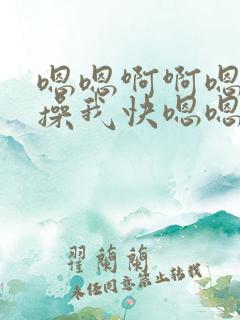 嗯嗯啊啊嗯
操我快嗯嗯
翟蘭蘭
未经同意禁止转载